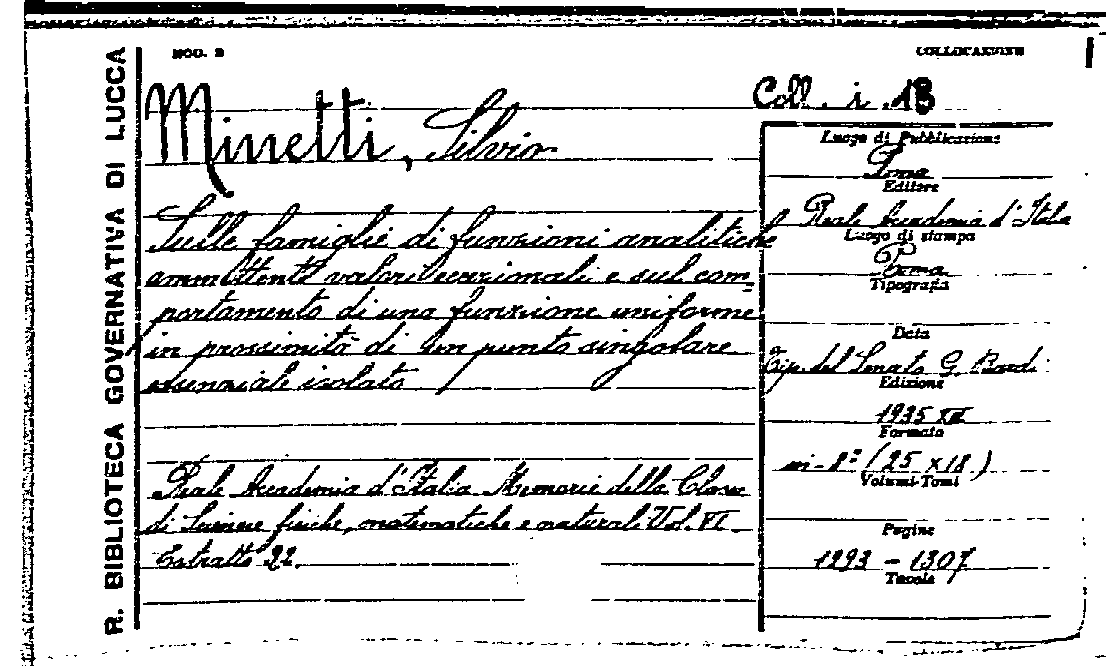 R. BIBLIOTECA GOVERNATIVA DI LUCCA
MOD. B
COLLOCAZIONE
Coll. i. 13
Minetti, Silvio
Sulle famiglie di funzioni analitiche
ammittenti valori eccezionali e sul com=
portamento di una funzione uniforme
in prossimità di un punto singolare
essenziale isolato
Reale Accademia d'Italia Memorie della Classe
di Scienze fisiche, matematiche e naturali Vol. VI
Estratto 22.
Luogo di Pubblicazione
Roma
Editore
Reale Accademia d'Italia
Luogo di stampa
Roma
Tipografia
Data
Tip. del Senato G. Bardi
Edizione
1935 XIII
Formato
in-8º (25 x 18)
Volumi-Tomi
Pagine
1293 - 1307
Tavole